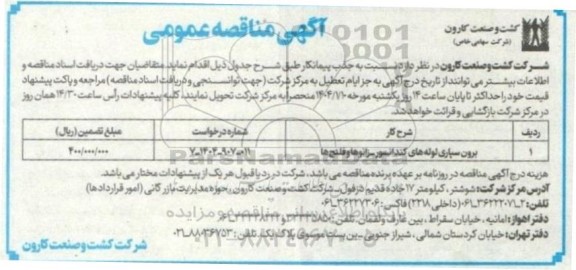 کشت و صنعت کارون
(شرکت سهامی خاص)
آگهی مناقصه عمومی
شرکت کشت و صنعت کارون در نظر دارد نسبت به جذب پیمانکار طبق شرح جدول ذیل اقدام نماید. متقاضیان جهت دریافت اسناد مناقصه و
اطلاعات بیشتر می توانند از تاریخ درج آگهی به جز ایام تعطیل به مرکز شرکت (جهت توانسنجی و دریافت اسناد مناقصه) مراجعه و پاکت پیشنهاد
قیمت خود را حداکثر تا پایان ساعت ۱۴ روز یکشنبه مورخه ۱۴۰۴/۷/۱۰ منحصرا به مرکز شرکت تحویل نمایند. کلیه پیشنهادات رأس ساعت ۱۴/۳۰ همان روز
در مرکز شرکت بازگشایی و قرائت خواهد شد.
ردیف شرح کار شماره درخواست مبلغ تضمین (ریال)
۱ برون سپاری لوله های کندانسور سرلوله ها و فلنج ها ۴۰۰/۰۰۰/۰۰۰
هزینه درج آگهی مناقصه در روزنامه بر عهده برنده مناقصه می باشد. شرکت در رد یا قبول هر یک از پیشنهادات مختار می باشد.
آدرس مرکز شرکت: شوشتر، کیلومتر ۱۷ جاده قدیم دزفول- شرکت کشت و صنعت کارون، حوزه مدیریت بازرگانی (امور قراردادها)
تلفن: (داخلی ۲۲۱۸) فاکس:
دفتر اهواز: امانیه، خیابان سقراط، بین
دفتر تهران: خیابان کردستان شمالی، شیراز جنوبی- بن بست موسوی پلاک یک، تلفن: ۸۸۰۳۶۷۵۳-۰۲۱
شرکت کشت و صنعت کارون